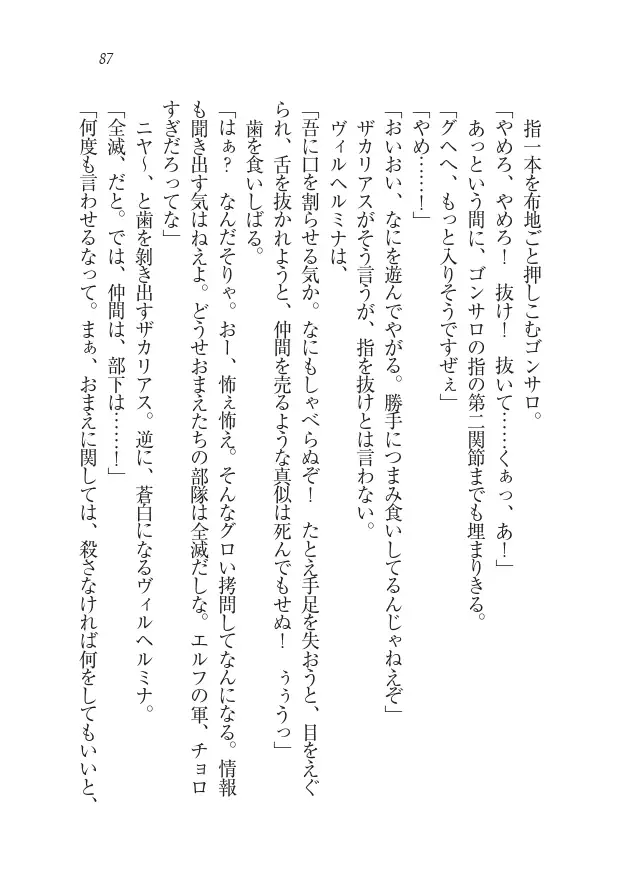 87
指一本を布地ごと押しこむゴンサロ。
「やめろ、やめろ！　抜け！　抜いて……くぁっ、あ！」
あっという間に、ゴンサロの指の第二関節までも埋まりきる。
「グヘへ、もっと入りそうですぜぇ」
「やめ……！」
「おいおい、なにを遊んでやがる。勝手につまみ食いしてるんじゃねえぞ」
ザカリアスがそう言うが、指を抜けとは言わない。
ヴィルヘルミナは、
「吾に口を割らせる気か。なにもしゃべらぬぞ！　たとえ手足を失おうと、目をえぐ
られ、舌を抜かれようと、仲間を売るような真似は死んでもせぬ！　ぅぅうっ」
歯を食いしばる。
「はぁ？　なんだそりゃ。おー、怖ぇ怖え。そんなグロい拷問してなんになる。情報
も聞き出す気はねえよ。どうせおまえたちの部隊は全滅だしな。エルフの軍、チョロ
すぎだろってな」
ニヤ～、と歯を剝き出すザカリアス。逆に、蒼白になるヴィルヘルミナ。
「全滅、だと。では、仲間は、部下は……！」
「何度も言わせるなって。まぁ、おまえに関しては、殺さなければ何をしてもいいと、